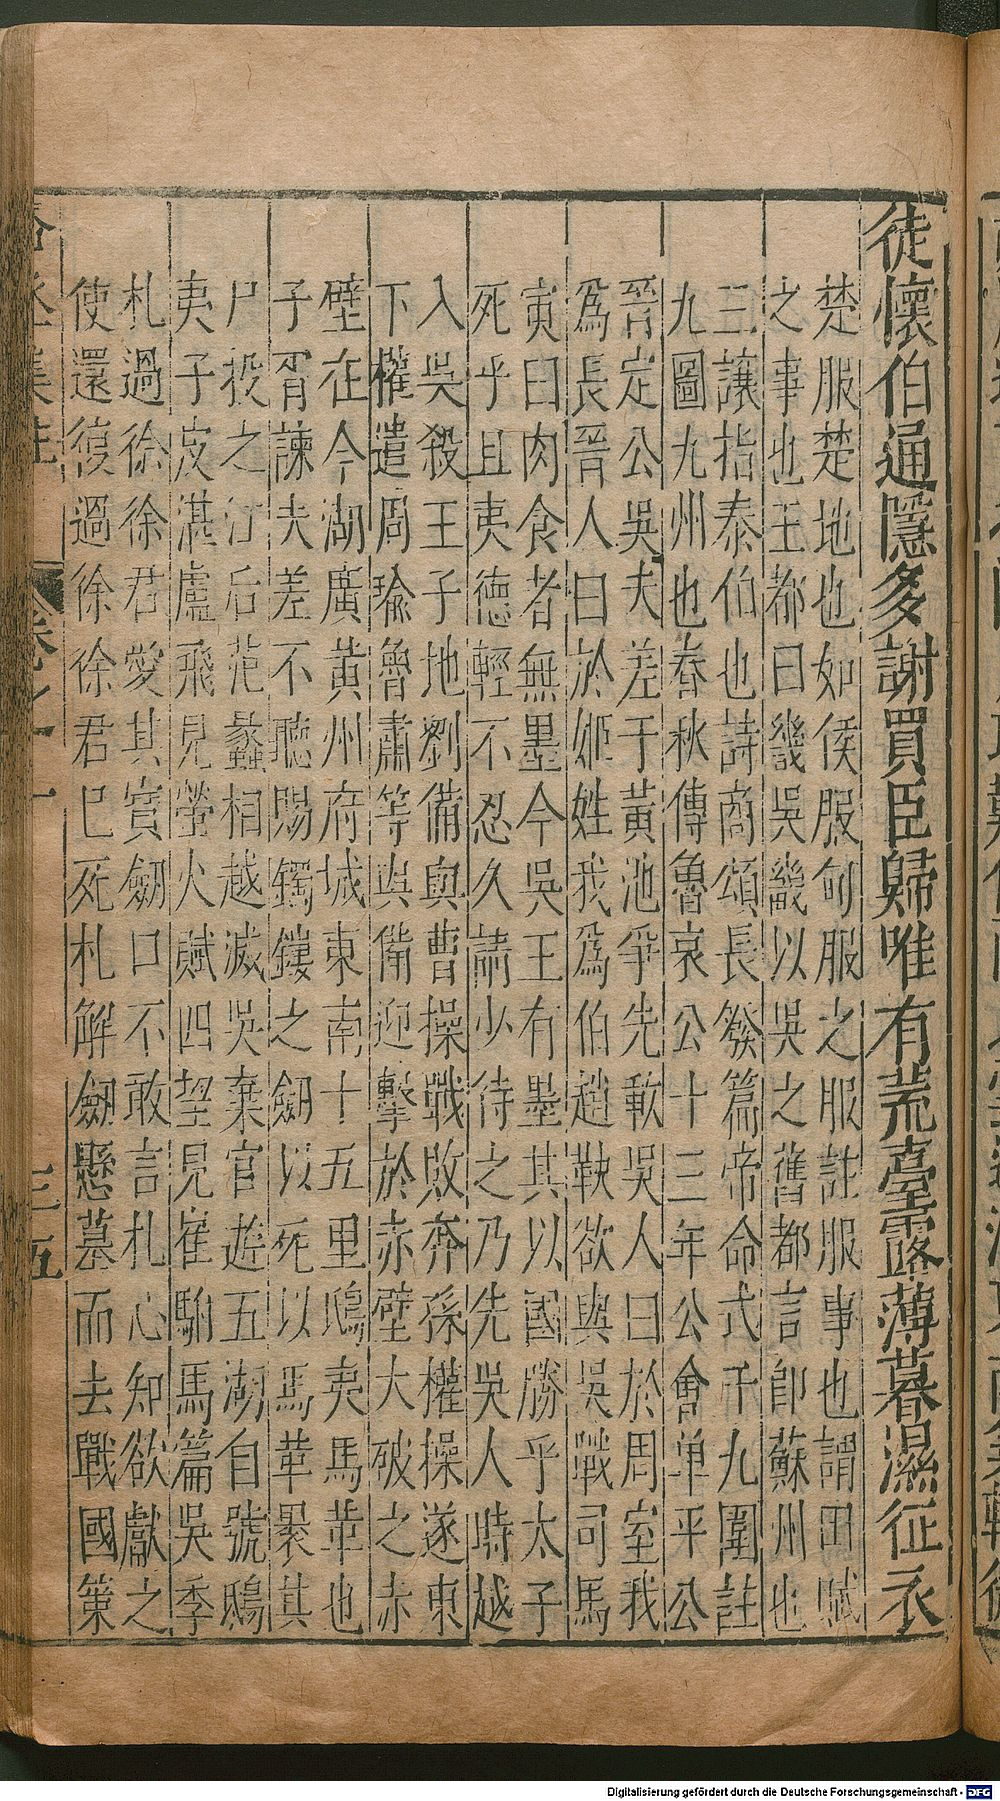 徒懷伯通隱多謝買臣歸唯有荒臺露薄暮濕征衣
楚服楚地也如侯服甸服之服註服事也謂田賦
之事也王都曰畿吳畿以吳之舊都言卽蘇州也
三讓指泰伯也詩商頌長發篇帝命式于九圍註
九圖九州也春秋傳魯哀公十三年公會单平公
晉定公吳夫差于黃池爭先歃吳人曰於周室我
爲長晉人曰於姬姓我爲伯趙鞅欲與吳戰司馬
寅曰肉食者無墨今吳王有墨其以國勝乎太子
死乎且夷德輕不忍久請少待之乃先吳人時越
入吳殺王子地劉備與曹操戰敗奔孫權操遂東
下權遣周瑜魯肅等與備迎擊於赤壁大破之赤
壁在今湖廣黃州府城東南十五里鴟夷馬革也
子胥諫夫差不聽賜鐲鏤之劒以死以馬革褁其
尸投之江后范蠡相越滅吳棄官遊五湖自號鴟
夷子皮湛盧飛見螢火賦四望見崔駙馬篇吳季
札過徐徐君愛其寶劒口不敢言札心知欲獻之
使還復過徐徐君巳死札解劒懸墓而去戰國策
集註 卷之十 三五
Digitalisierung gefördert durch die Deutsche Forschungsgemeinschaft - DFG